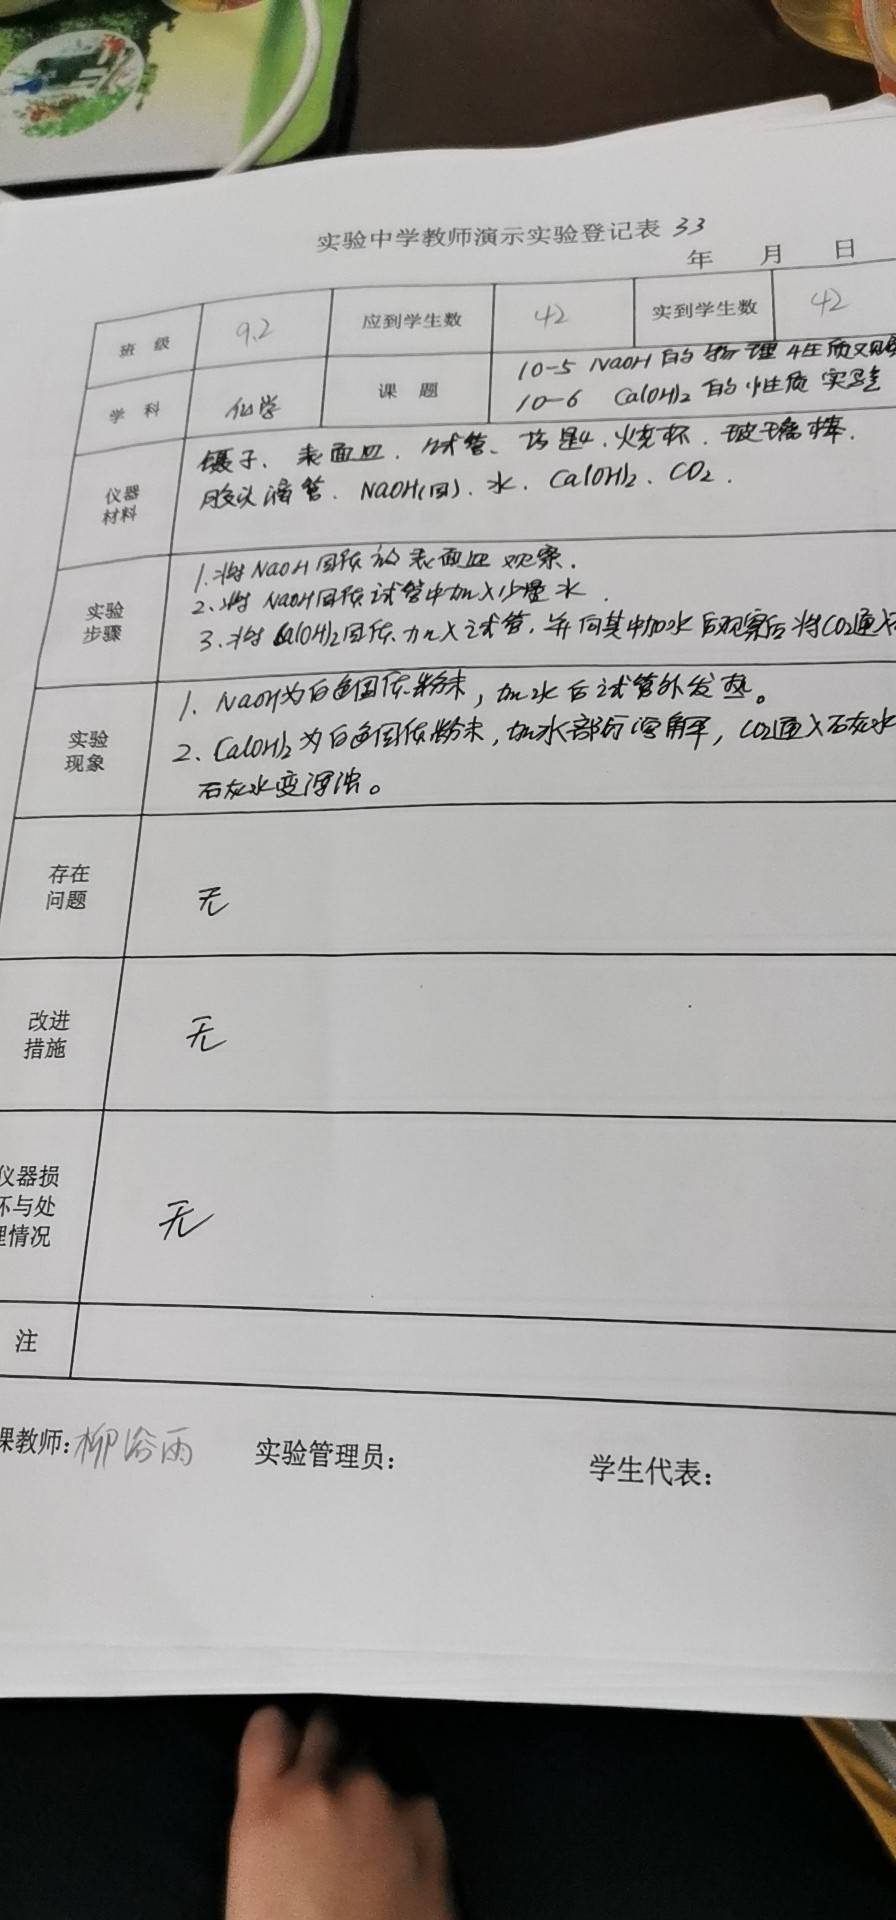 实验中学教师演示实验登记表 33
年 月 日
班 级 9.2 应到学生数 42 实到学生数 42
学 科 化学 课 题 10-5 NaOH的物理性质
10-6 Ca(OH)2的性质实验
仪器
材料
镊子、表面皿、试管、药匙、烧杯、玻璃棒、
胶头滴管、NaOH(固)、水、Ca(OH)2、CO2.
实验
步骤
1.将NaOH固体放表面皿观察.
2.将NaOH固体试管中加入少量水.
3.将Ca(OH)2固体加入试管,并向其中加水后观察后将CO2通入
实验
现象
1、NaOH为白色固体粉末,加水后试管外发热。
2、Ca(OH)2为白色固体粉末,加水部分溶解,CO2通入石灰水
石灰水变浑浊。
存在
问题
无
改进
措施
无
仪器损
坏与处
理情况
无
注
课教师:柳浴雨 实验管理员: 学生代表: